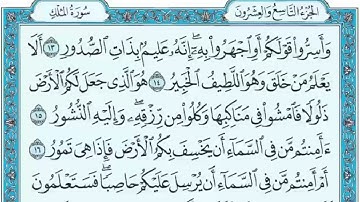 الجُزْءُ التَّاسِعُ وَالعِشْرُونَ سُورَةُ المُلْكِ
وَأَسِرُّوا۟ قَوْلَكُمْ أَوِ ٱجْهَرُوا۟ بِهِۦٓ ۖ إِنَّهُۥ عَلِيمٌۢ بِذَاتِ ٱلصُّدُورِ ١٣ أَلَا
يَعْلَمُ مَنْ خَلَقَ وَهُوَ ٱللَّطِيفُ ٱلْخَبِيرُ ١٤ هُوَ ٱلَّذِى جَعَلَ لَكُمُ ٱلْأَرْضَ
ذَلُولًا فَٱمْشُوا۟ فِى مَنَاكِبِهَا وَكُلُوا۟ مِن رِّزْقِهِۦ ۖ وَإِلَيْهِ ٱلنُّشُورُ ١٥
ءَأَمِنتُم مَّن فِى ٱلسَّمَآءِ أَن يَخْسِفَ بِكُمُ ٱلْأَرْضَ فَإِذَا هِىَ تَمُورُ ١٦
أَمْ أَمِنتُم مَّن فِى ٱلسَّمَآءِ أَن يُرْسِلَ عَلَيْكُمْ حَاصِبًا ۖ فَسَتَعْلَمُونَ